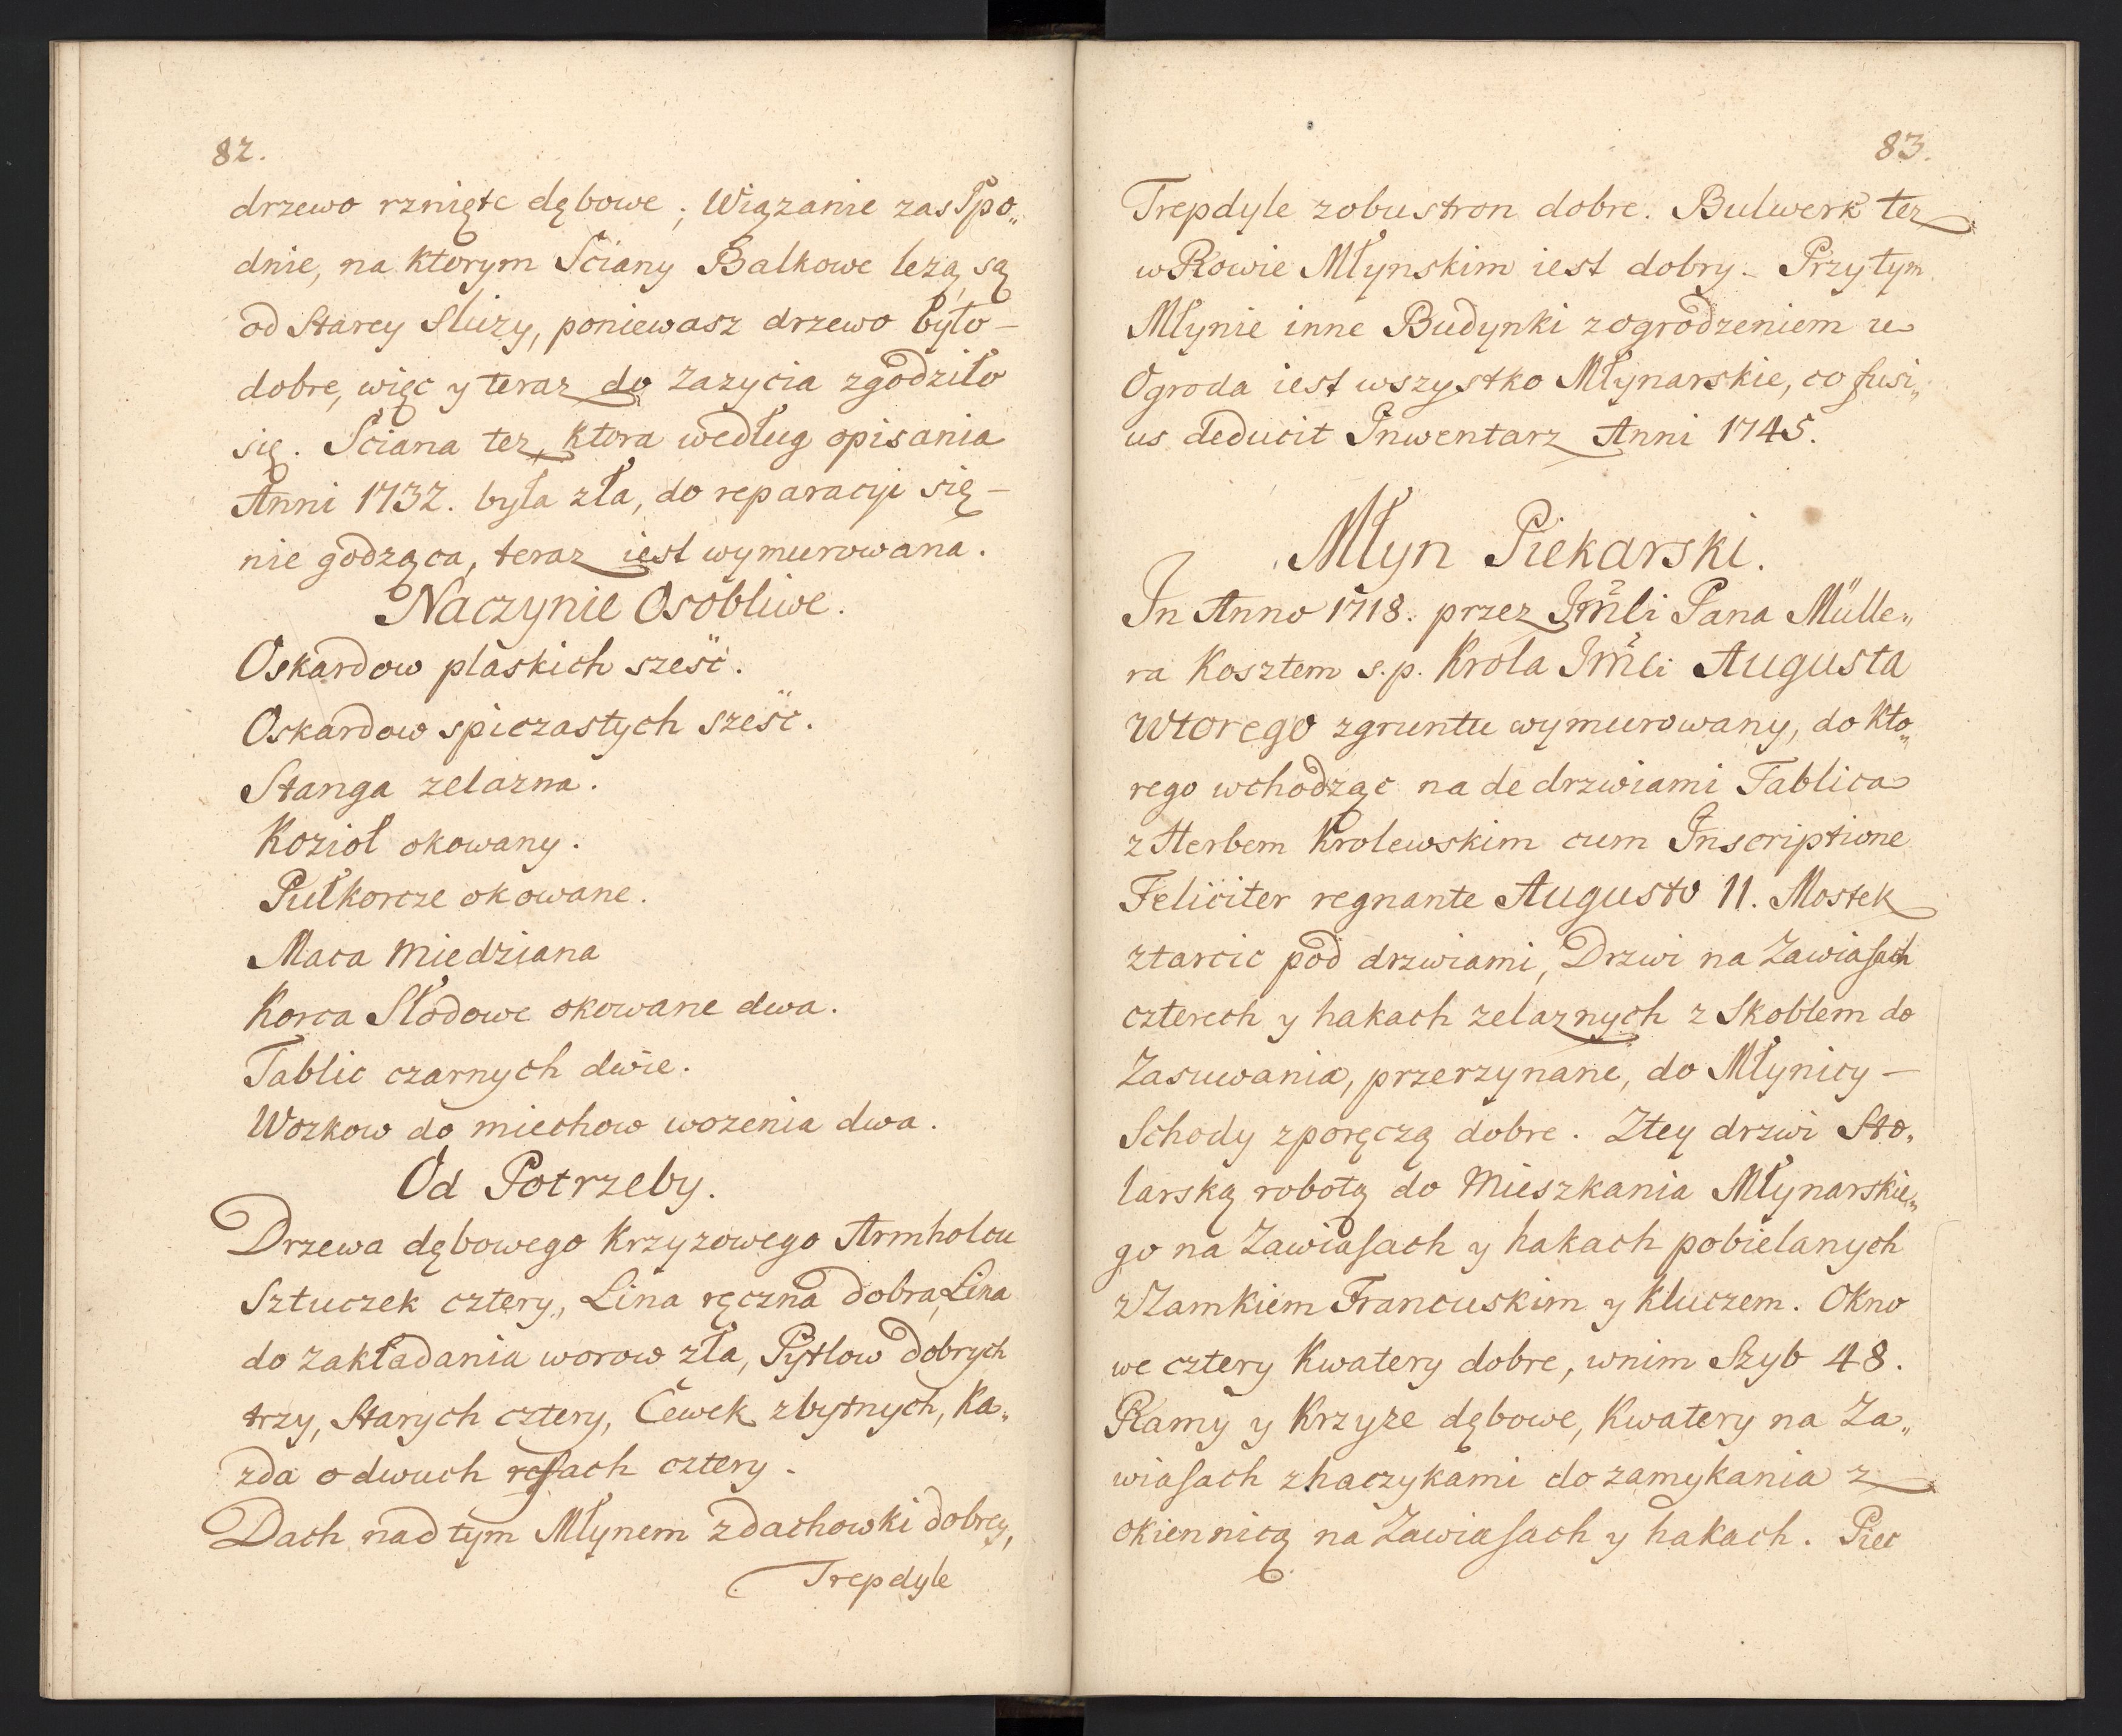 82.
drzewo rznięte dębowe; Wiązanie zas Spo„
dnie, na ktorym Sciany Balkowe leżą, są
od Starey Sluzy, poniewasz drzewo było –
dobre, więc y teraz do Zazycia zgodziło
się. Sciana tez, ktora według opisania
Anni 1732. była zła, do reparacyi się –
nie godząca, teraz iest wymurowana.
Naczynie Osobliwe.
Oskardow płaskich szesć.
Oskardow spiczastych szesć.
Stanga zelazna.
Kozioł okowany.
Pułkorcze okowane.
Maca Miedziana
Korca Słodowe okowane dwa.
Tablic czarnych dwie.
Wozkow do miechow wozenia dwa.
Od Potrzeby.
Drzewa dębowego Krzyzowego Armholcu
Sztuczek cztery, Lina ręczna dobra, Lina
do Zakładania worow zła, Pytlow dobrych
trzy, Starych cztery, Cewek zbytnych, Ka„
zda o dwuch cztery.
Dach nad tym Młynem z dachowki dobrey,
Trepdyle
83.
Trepdyle zobustron dobre. Bulwerk tez
w Rowie Młynskim iest dobry – Przy tym
Młynie inne Budynki z ogrodzeniem u
Ogroda iest wszystko Młynarskie, co fusi„
us deducit Inwentarz Anni 1745.
Młyn Piekarski.
In Anno 1718. przez Jmci Pana Mülle„
ra Kosztem s.p. Krola Jmci Augusta
Wtorego zgruntu wymurowany, do Kto„
rego wchodząc na de drzwiami Tablica
z Herbem Krolewskim cum Inscriptione
Feliciter regnante Augusto II. Mostek
ztarcic pod drzwiami, Drzwi na Zawiasach
czterech y hakach zelaznych z Skoblem do
Zasuwania, przerzynane, do Młynicy –
Schody zporęczą dobre. Ztey drzwi Sto„
larską robotą do Mieszkania Młynarskie„
go na Zawiasach y hakach pobielanych
z Zamkiem Francuskim y Kluczem. Okno
we cztery Kwatery dobre, wnim Szyb 48.
Ramy y Krzyże dębowe, Kwatery na Za„
wiasach zhaczykami do zamykania z
okiennicą na Zawiasach y hakach. Piec